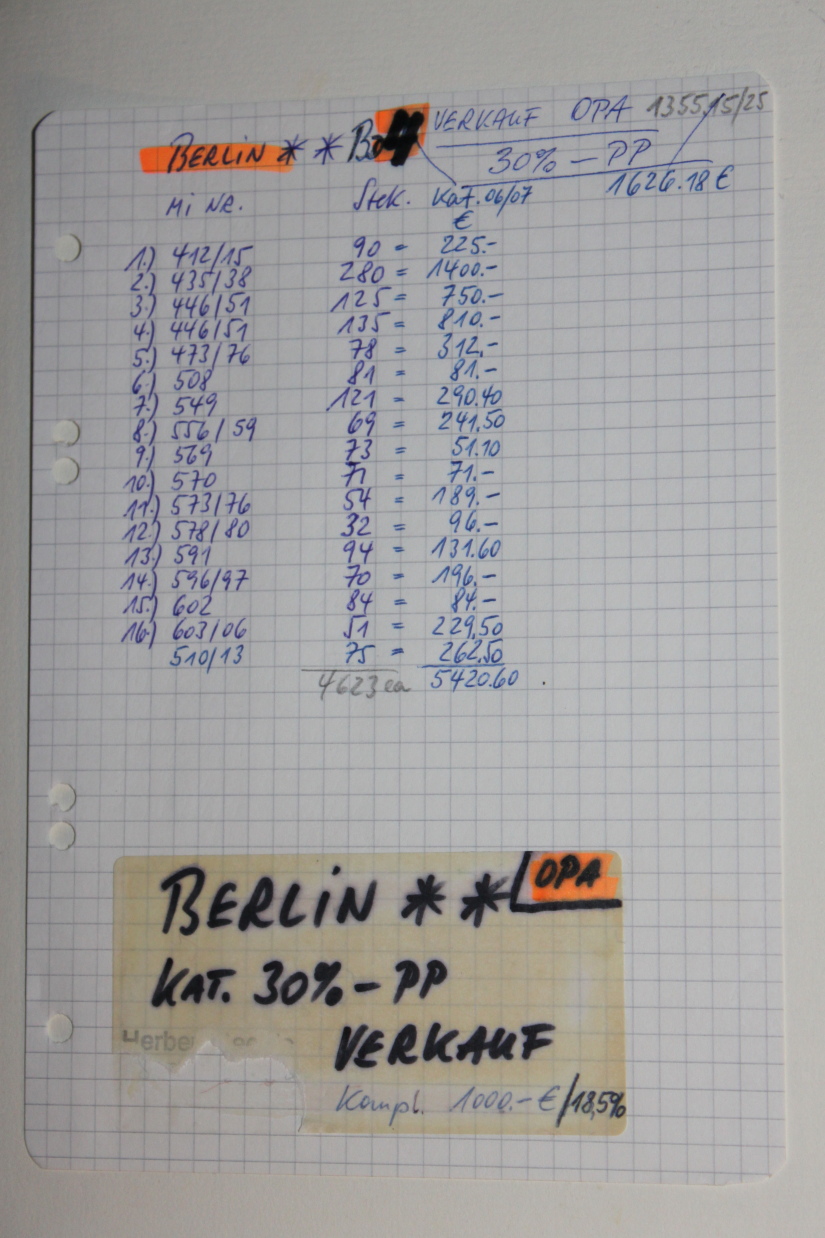 BERLIN ** VERKAUF OPA 1355,15/25
30% - PP
MI NR. Stck. KAT. 06/07 1626.18 €
€
1.) 412/15 90 = 225.-
2.) 435/38 280 = 1400.-
3.) 446/51 125 = 750.-
4.) 446/51 135 = 810.-
5.) 473/76 78 = 312.-
6.) 508 81 = 81.-
7.) 549 121 = 290.40
8.) 556/59 69 = 241.50
9.) 569 73 = 51.10
10.) 570 71 = 71.-
11.) 573/76 54 = 189.-
12.) 578/80 32 = 96.-
13.) 591 94 = 131.60
14.) 596/97 70 = 196.-
15.) 602 84 = 84.-
16.) 603/06 51 = 229,50
510/13 75 = 262.50
4623 ca 5420.60
BERLIN ** OPA
KAT. 30% - PP
VERKAUF
Kompl. 1000.- €/18,5%